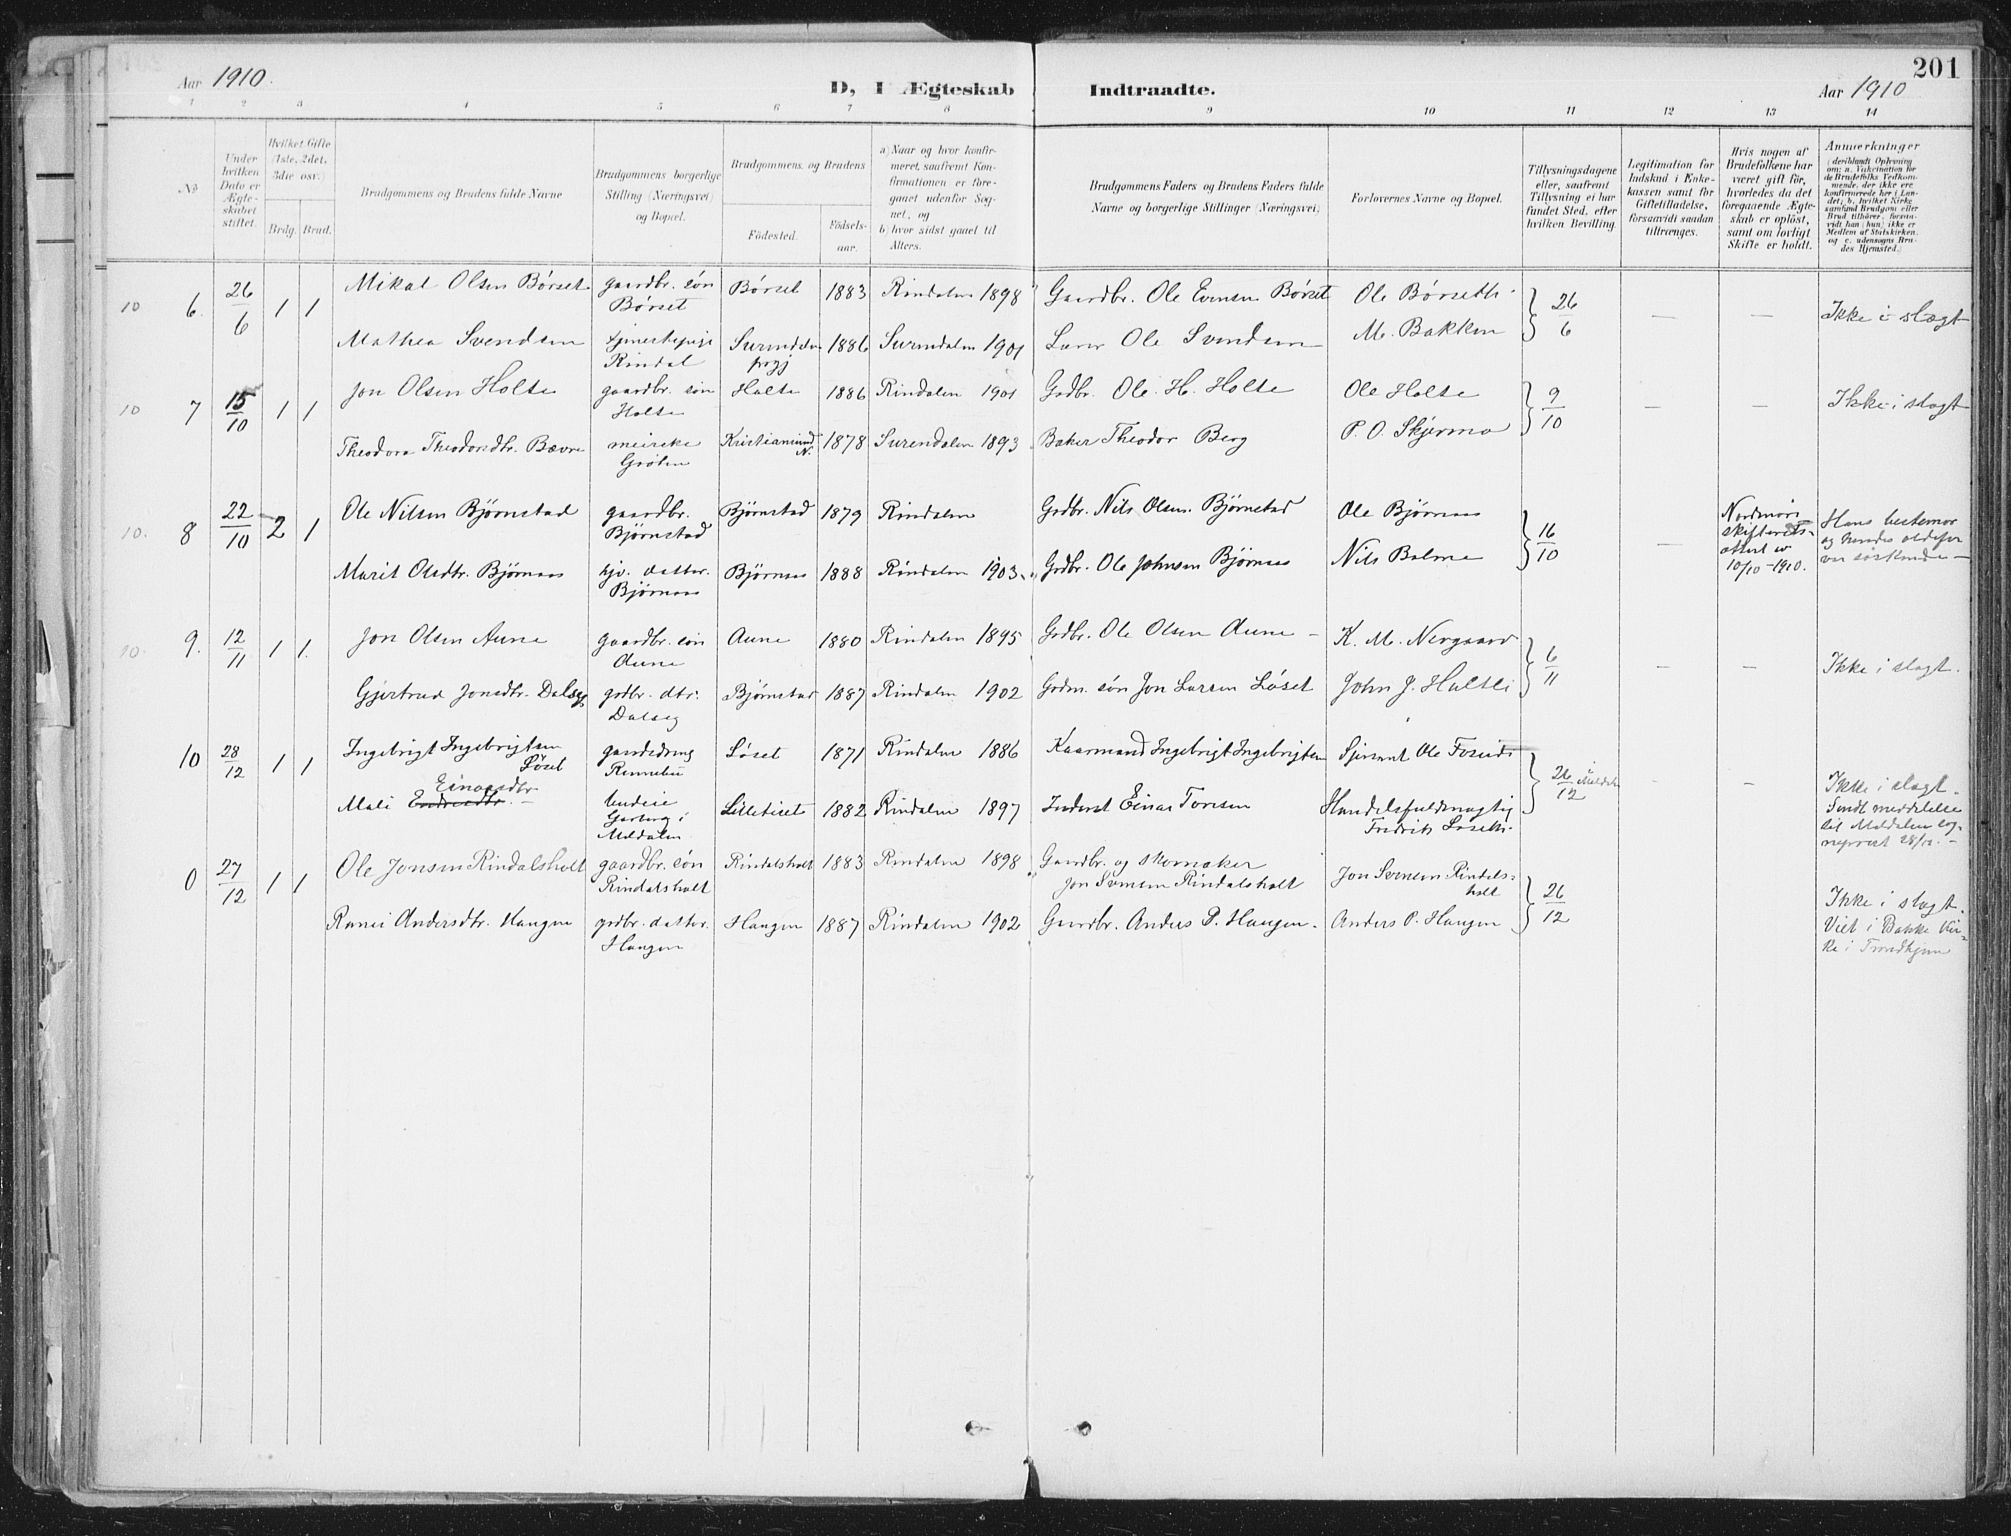 201
Aar 1910.
D, I Ægteskab Indtraadte.
Aar 1910
1 2 3 4 5 6 7 8 9 10 11 12 13 14
No
Under hvilken Dato er Ægteskabet stiftet.
Hvilket Gifte (1ste, 2det, 3die osv.)
Brdg. Brud.
Brudgommens og Brudens fulde Navne
Brudgommens borgerlige Stilling (Næringsvei) og Bopæl.
Brudgommens og Brudens
Fødested.
Fødselsaar.
a) Naar og hvor konfirmeret, saafremt Konfirmationen er foregaaet udenfor Sognet, og
b) hvor sidst gaaet til Alters.
Brudgommens Faders og Brudens Faders fulde Navne og borgerlige Stillinger (Næringsvei)
Forlovernes Navne og Bopæl.
Tillysningsdagene eller, saafremt Tillysning ei har fundet Sted, efter hvilken Bevilling.
Legitimation for Indskud i Enkekassen samt for Giftetilladelse, forsaavidt saadan tiltrænges.
Hvis nogen af Brudefolkene har været gift før, hvorledes da det foregaaende Ægteskab er opløst, samt om lovligt Skifte er holdt.
Anmærkninger
(deriblandt Oplysning om: a. Vakcination for de Brudefolks Vedkommende, der ikke ere konfirmerede her i Landet; b. hvilket Kirkesamfund Brudgom eller Brud tilhører, forsaavidt han (hun) ikke er Medlem af Statskirken, og c. udensogns Brudes Hjemsted.)
10 6. 26/6 1 1 Mikal Olsen Børset gaardbr. søn Børset Børset 1883 Rindalen 1898 Gaardbr. Ole Evensen Børset Ole Børseth 26/6 — — Ikke i slægt
Mathea Svendsen tjenestepige Rindal Surendalen 1886 Surendalen 1901 Ole Svendsen M. Bakken
10 7 15/10 1 1 Jon Olsen Holte gaardbr. søn Holte Holte 1886 Rindalen 1901 Grdbr. Ole H. Holte Ole Holte 9/10 — — Ikke i slægt
Theodora Theodorsdbr. Bævre meierske Grøten Kristiansund N. 1878 Surendalen 1893 Baker Theodor Berg P. O. Skjermo
10. 8 22/10 2 1 Ole Nilsen Bjørnstad gaardbr. Bjørnstad Bjørnstad 1879 Rindalen Grdbr. Nils Olsen Bjørnstad Ole Bjørnaas 16/10 — Nordmøre skifterets attest av 10/10-1910. Hans bestemor og hendes oldefar var søskende —
Marit Olsdtr. Bjørnaas hjv. datter. Bjørnaas Bjørnaas 1888 Rindalen 1903. Grdbr. Ole Johnsen Bjørnaas Nils Bolme
10. 9. 12/11 1 1. Jon Olsen Aune gaardbr. søn Aune Aune 1880 Rindalen 1895 Grdbr. Ole Olsen Aune — K. M. Nergaard 6/11 — — Ikke i slægt.
Gjertrud Jonsdtr. Dalseg grdbr. dtr. Dalseg Bjørnstad 1887 Rindalen 1902 Grdm. søn Jon Larsen Løset John J. Holtli
10 28/12 1 1 Ingebrigt Ingebrigtsen Løset Rennebu Løset 1871 Rindalen 1886 Kaarmand Ingebrigt Ingebrigtsen Ole 26/12 i Meldalen — — Ikke i slægt.
Mali Endresdtr. Einarsdtr. — Garberg i Meldalen Lilletiset 1882 Rindalen 1897 Inderst Einar Toresen Handelsfuldmægtig Fredrik Løseth. Sendt meddelelse til Meldalen sogneprest 28/12. —
0 27/12 1 1 Ole Jonsen Rindalsholt gaardbr. søn Rindalsholt Rindalsholt 1883 Rindalen 1898 Gaardbr. og skomaker Jon Svensen Rindalsholt Jon Svensen Rindalsholt 26/12 Ikke i slægt.
Ranei Andersdtr. Haugen grdbr. datter. Haugen Haugen 1887 Rindalen 1902 Gaardbr. Anders P. Haugen. Anders P. Haugen Viet i Bakke Kirke i Trondhjem